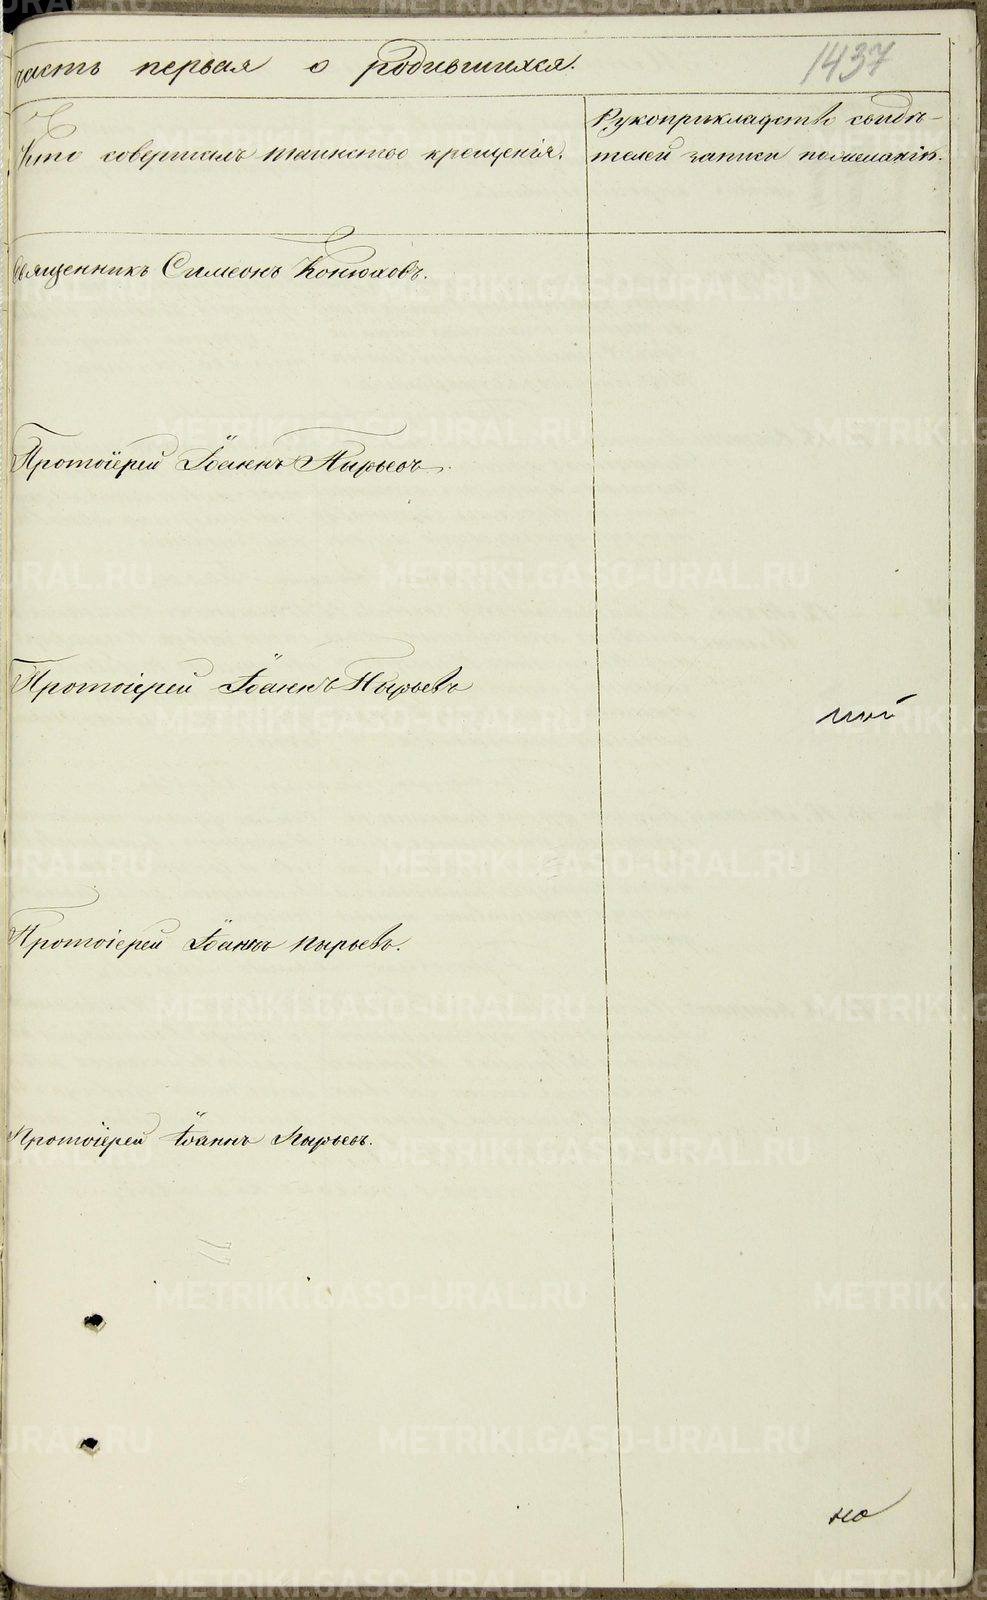 часть первая о родившихся.
1437
Кто совершалъ таинство крещенія.
Рукоприкладство свидѣ-
телей записи по желанію.
Священникъ Симеонъ Конюховъ.
Протоіерей Іоаннъ Пырьевъ.
Протоіерей Іоаннъ Пырьевъ
Протоіерей Іоаннъ Пырьевъ.
Протоіерей Іоаннъ Пырьевъ.
но
METRIKI.GASO-URAL.RU